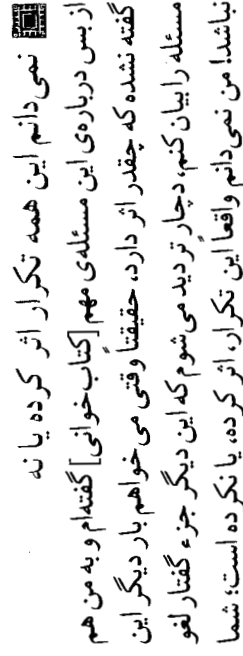 نمی‌دانم این همه تکرار اثر کرده یا نه
از بس درباره‌ی این مسئله‌ی مهم [کتاب‌خوانی] گفته‌ام و به من هم
گفته نشده که چقدر اثر دارد، حقیقتاً وقتی می‌خواهم بار دیگر این
مسئله را بیان کنم، دچار تردید می‌شوم که این دیگر جزء گفتار لغو
نباشد! من نمی‌دانم واقعاً این تکرار، اثر کرده، یا نکرده است؛ شما